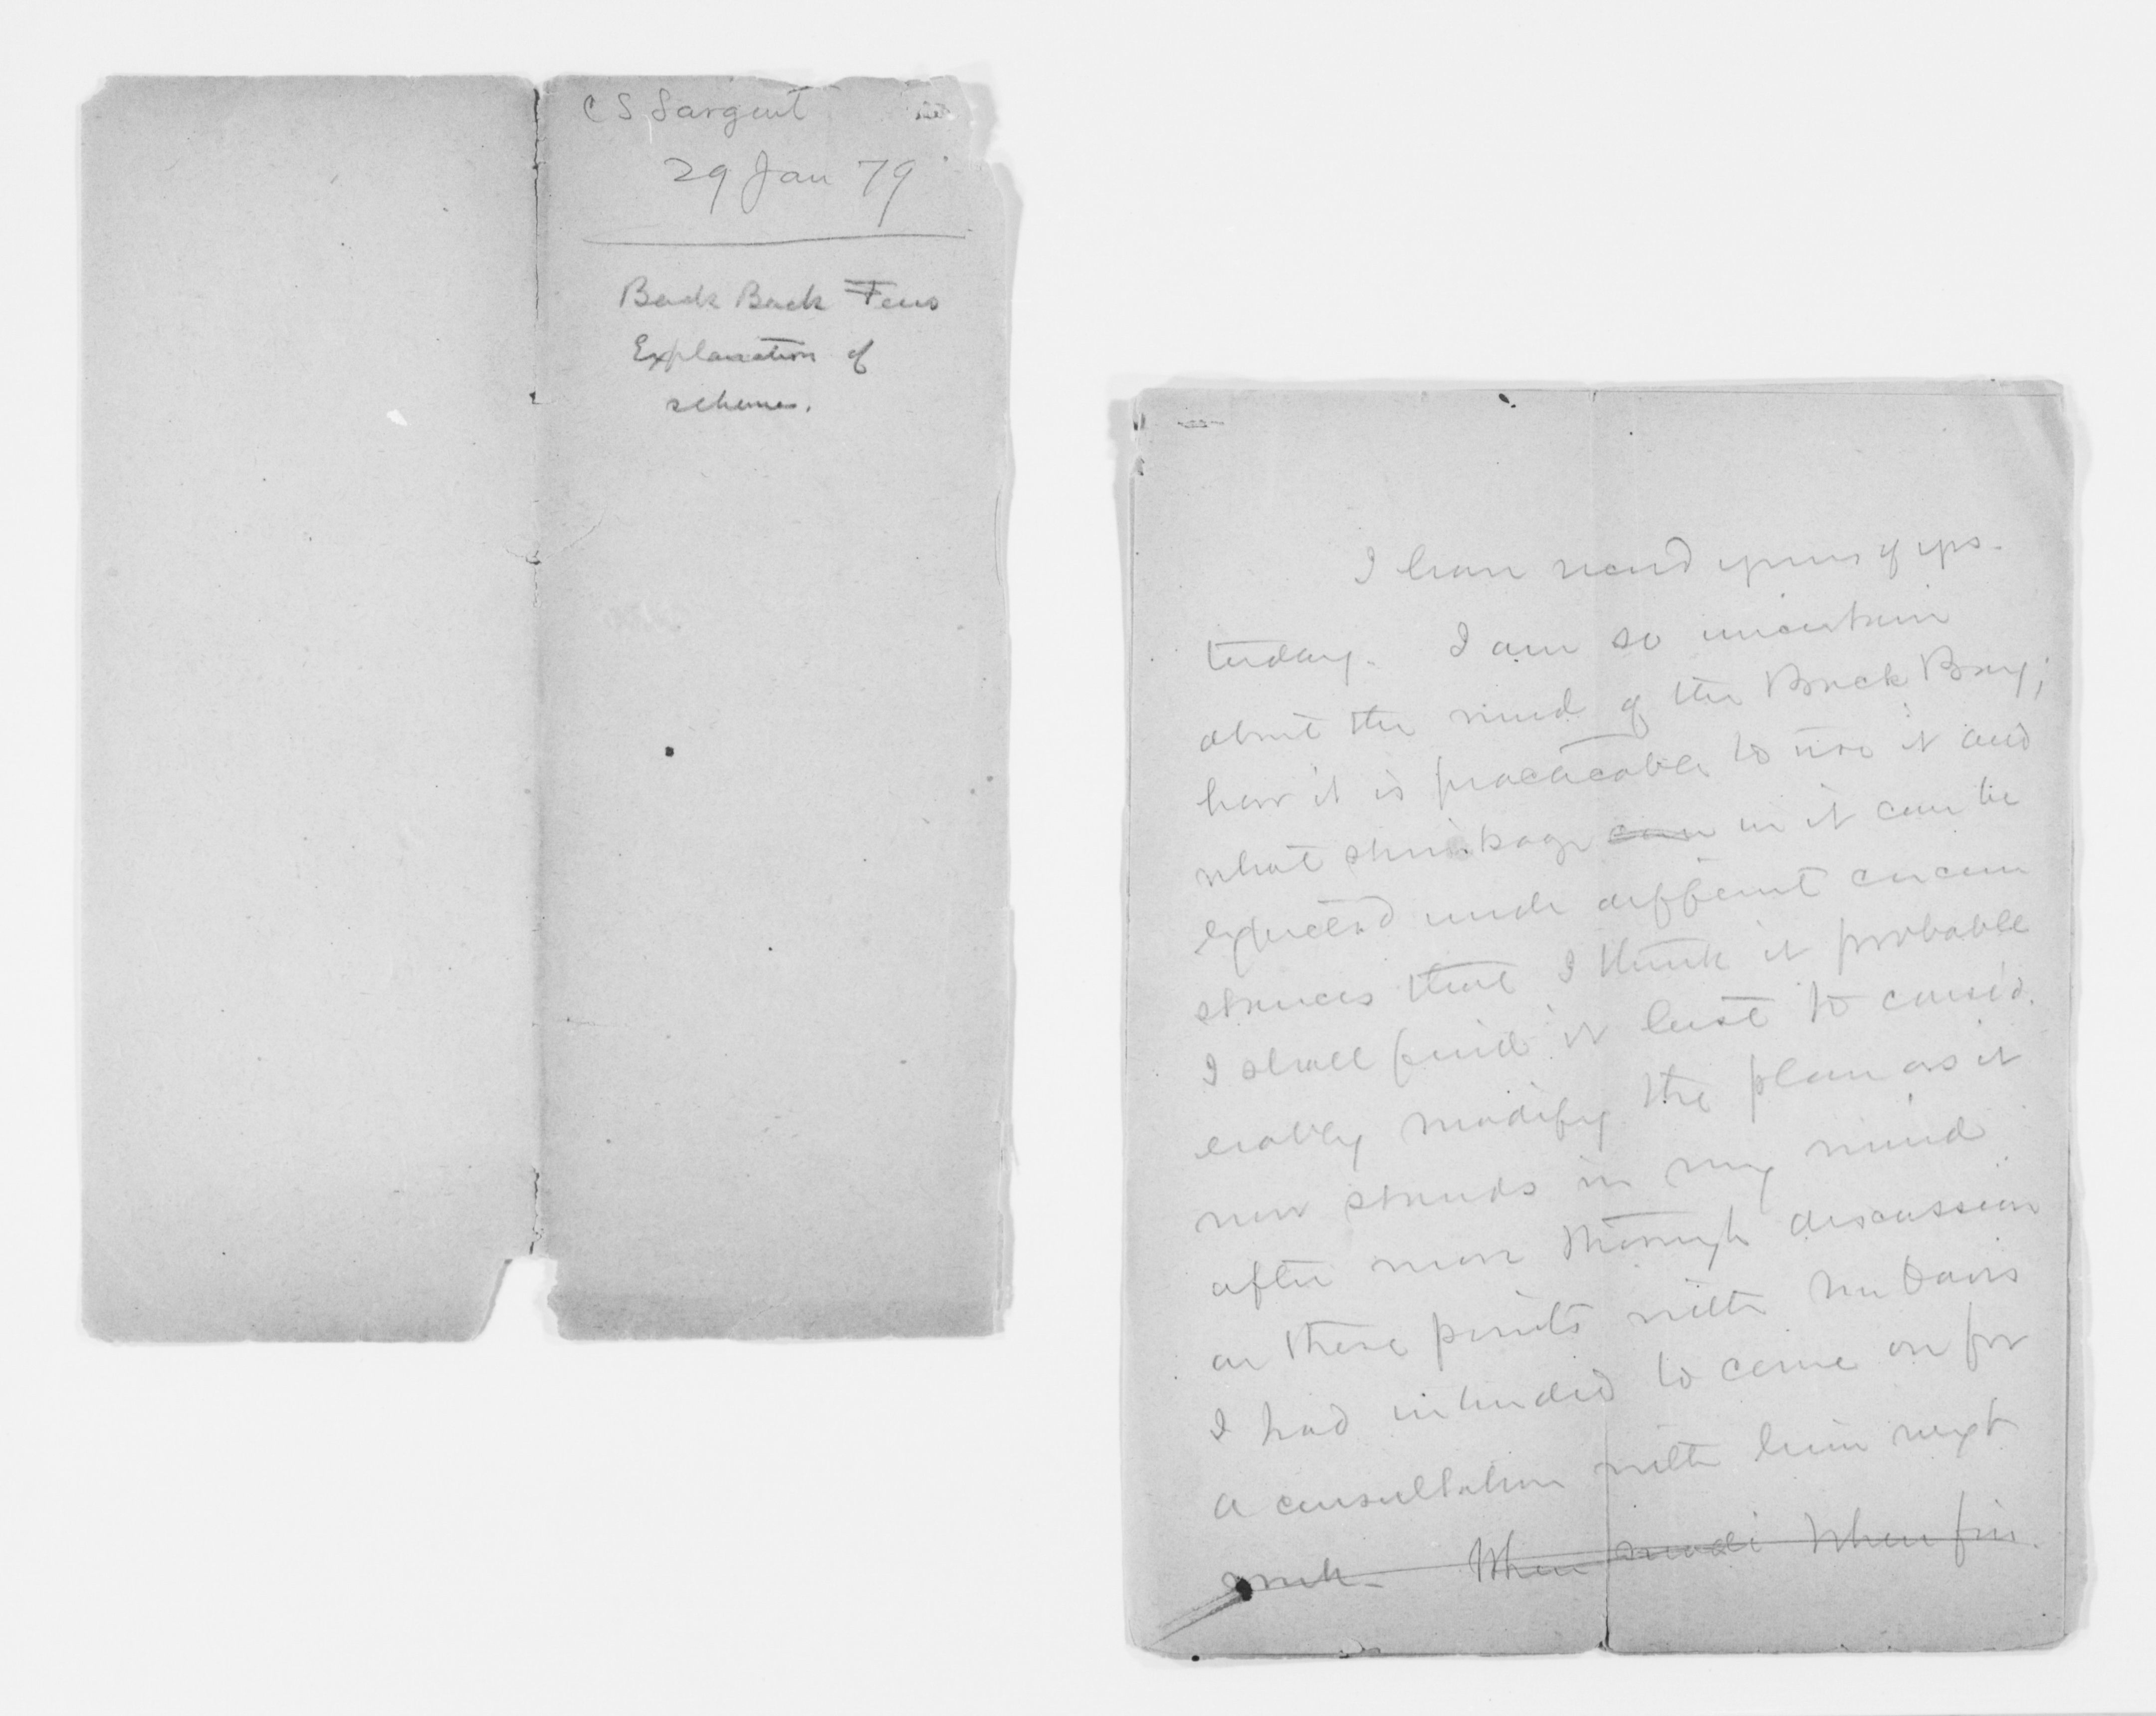 C S Sargent
29 Jan 79
Back Back Fens
Explanation of
scheme.
I have recd yours of yes-
terday. I am so uncertain
about the mud of the Back Bay;
how it is practicable to use it and
what shrinkage can in it can be
expected under different circum
stances that I think it probable
I shall find it best to consid-
erably modify the plan as it
now stands in my mind
after more thorough discussion
on these points with Mr Davis
I had intended to come on for
a consultation with him next
week. When made When fin